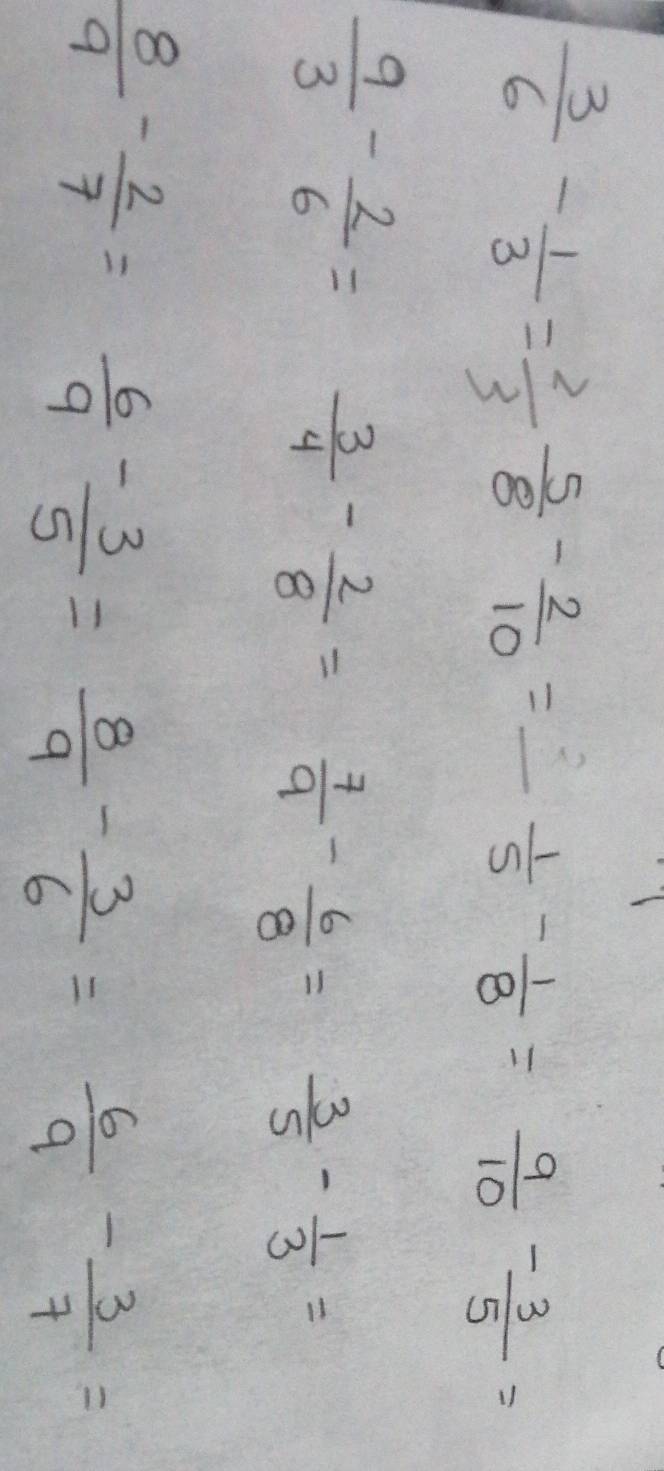 3/6 - 1/3 = 2/3 5/8 - 2/10 = 1/5 - 1/8 = 9/10 - 3/5 =
9/3 - 2/6 = 3/4 - 2/8 = 7/9 - 6/8 = 3/5 - 1/3 =
8/9 - 2/7 = 6/9 - 3/5 = 8/9 - 3/6 = 6/9 - 3/7 =